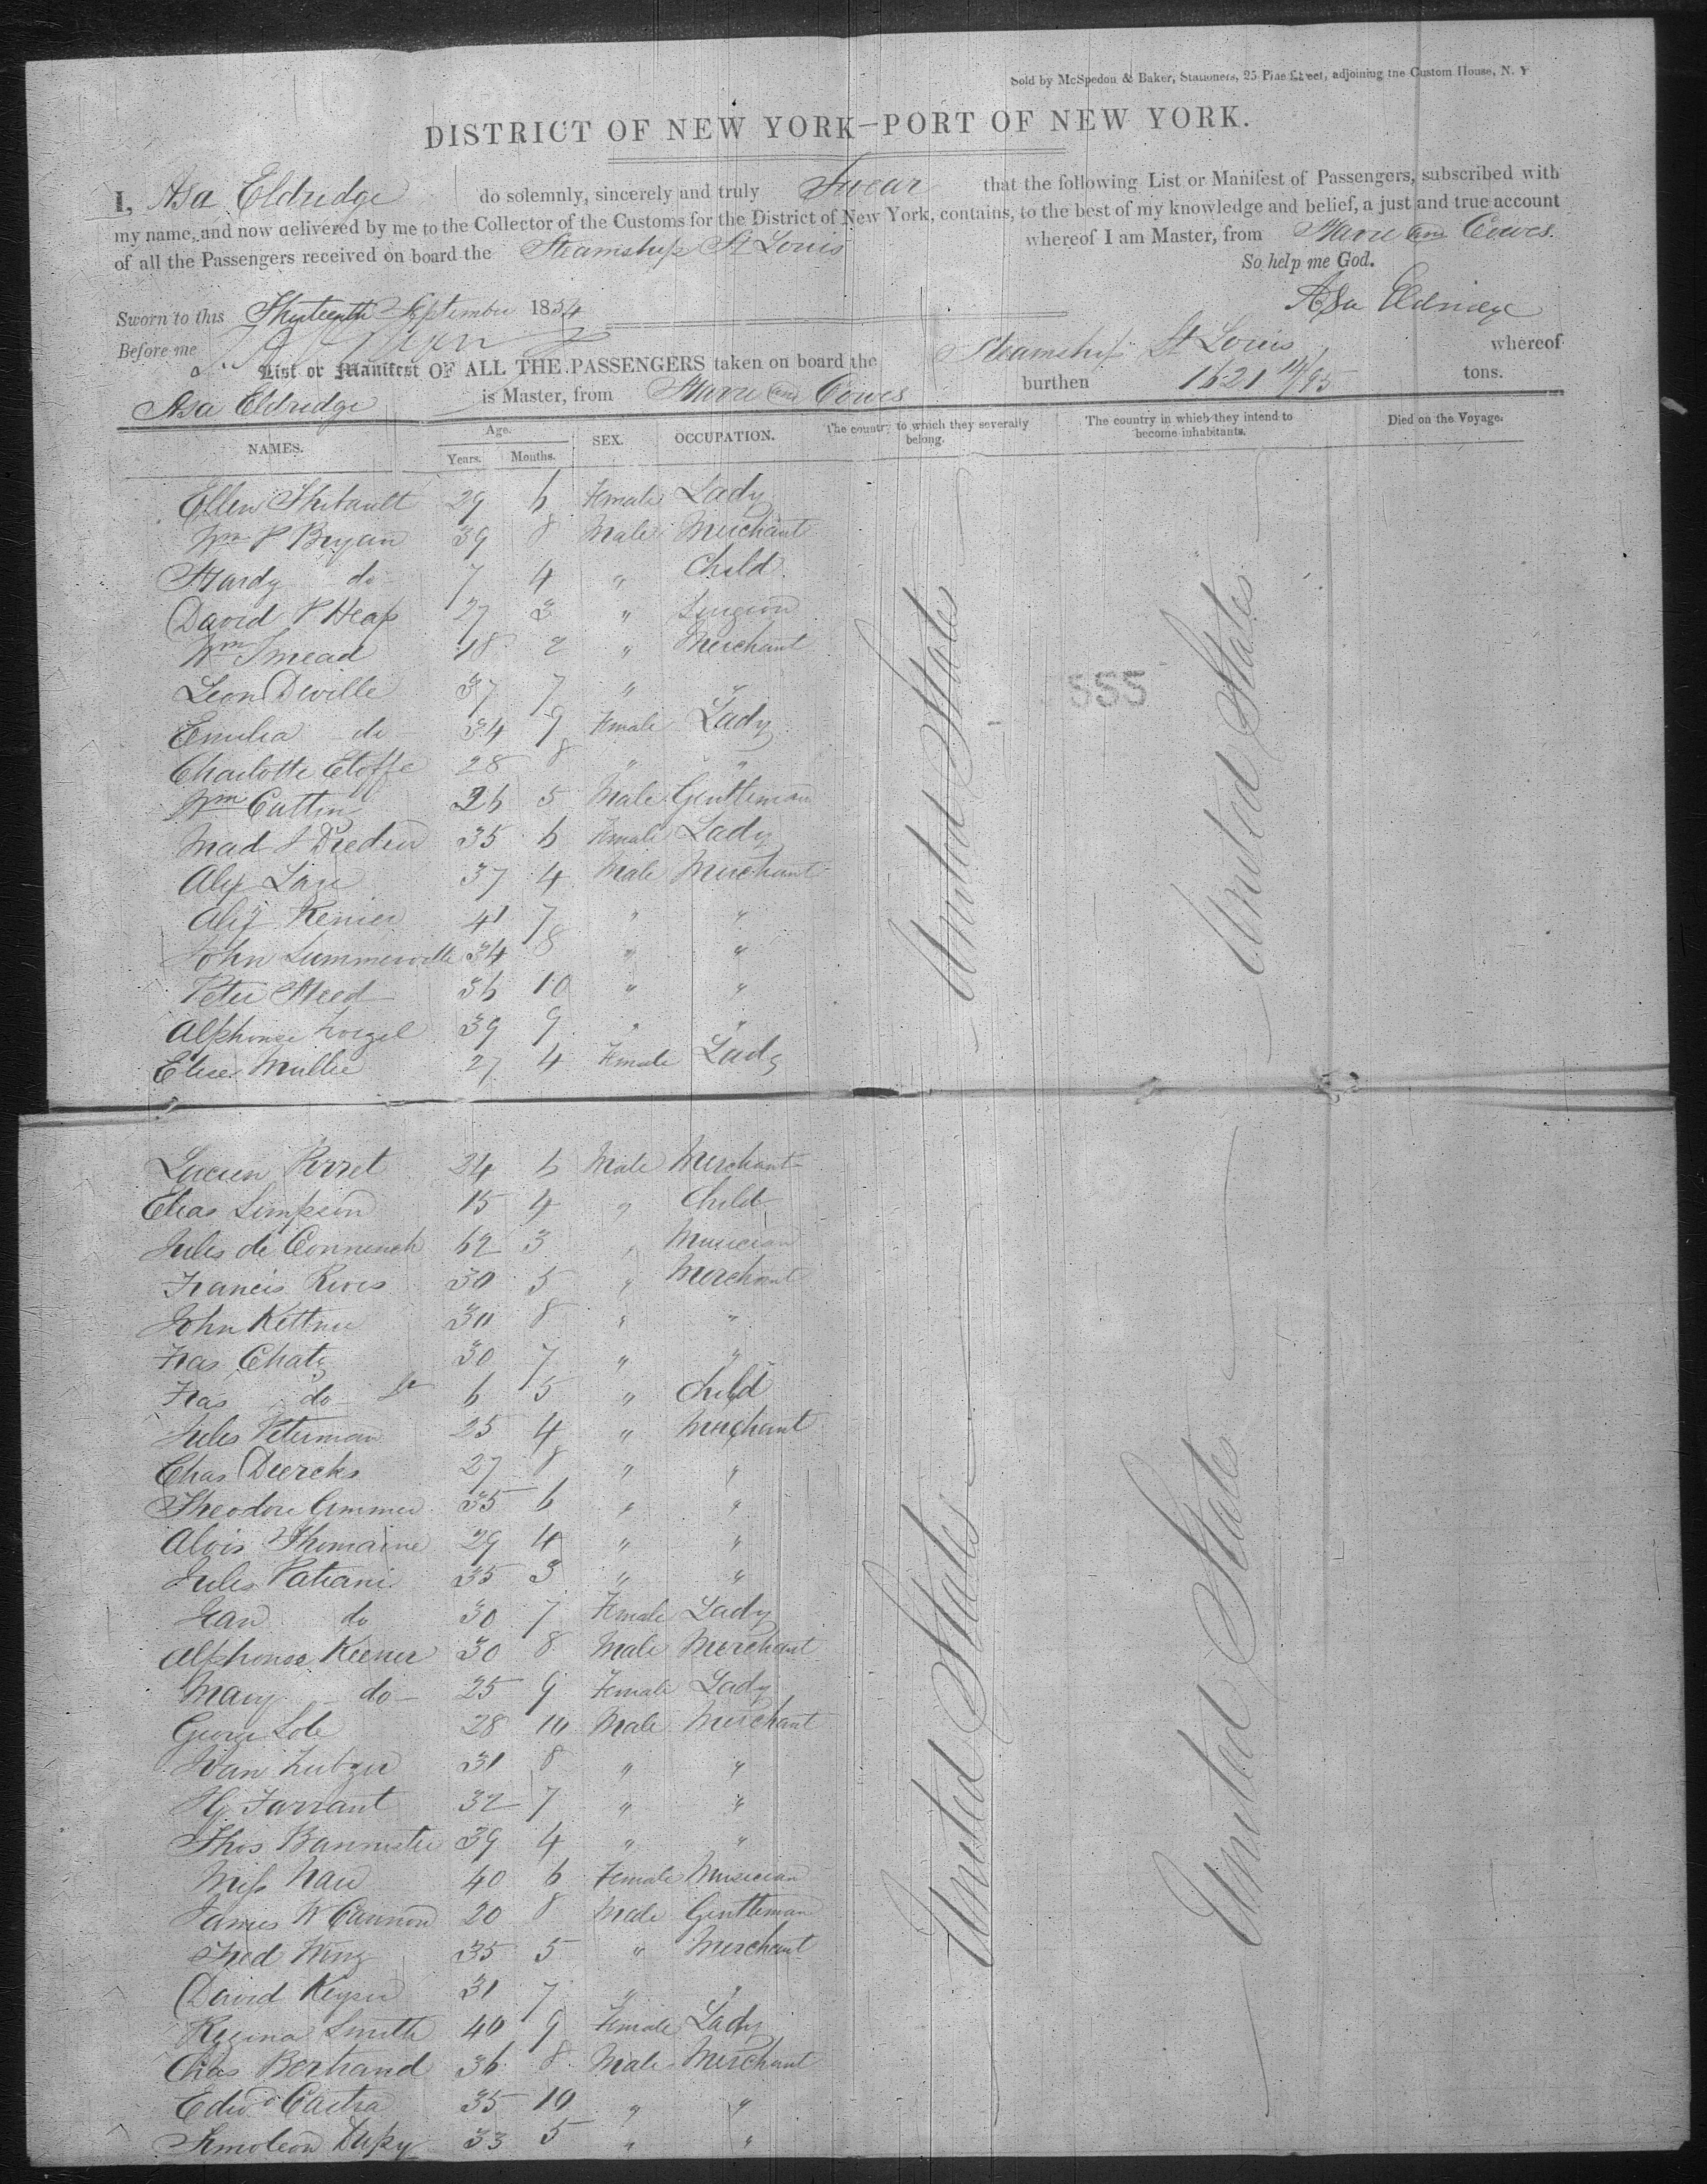 Sold by McSpedon & Baker, Stationers, 25 Pine Street, adjoining the Custom House, N. Y
DISTRICT OF NEW YORK—PORT OF NEW YORK.
I, Asa Eldredge do solemnly, sincerely and truly Swear that the following List or Manifest of Passengers, subscribed with
my name, and now delivered by me to the Collector of the Customs for the District of New York, contains, to the best of my knowledge and belief, a just and true account
of all the Passengers received on board the Steamship St Louis whereof I am Master, from Havre and Cowes.
So help me God.
Sworn to this Thirteenth September 1854 Asa Eldridge
Before me
List or Manifest OF ALL THE PASSENGERS taken on board the Steamship St Louis whereof
Asa Eldredge is Master, from Havre and Cowes burthen 1621 14/95 tons.
NAMES. Age. Years. Months. SEX. OCCUPATION. The country to which they severally belong. The country in which they intend to become inhabitants. Died on the Voyage.
Ellen Thibault 29 6 Female Lady
Wm P Bryan 39 8 Male Merchant
Hardy do 7 4 " Child
David P Heap 27 3 " Surgeon
Wm Smead 18 2 " Merchant
Leon Deville 37 7 " "
Emilia do 34 9 Female Lady
Charlotte Etoffe 28 8 " "
Wm Cutting 26 5 Male Gentleman
Mad 35 6 Female Lady
Alex 37 4 Male Merchant
41 7 " "
John Summerville 34 8 " "
Peter 36 10 " "
Alphonse 39 9 " "
Elise 27 4 Female Lady
Lucien Perret 24 6 Male Merchant
Elias Simpson 15 4 " Child
Jules de 62 3 " Musician
Francis Rives 30 5 " Merchant
John Kettner 30 8 " "
Fras 30 7 " "
Fras do Jr 6 5 " Child
Jules Peterman 25 4 " Merchant
Chas Diercks 27 8 " "
Theodore 35 6 " "
Alois Thomaine 29 4 " "
Jules 35 3 " "
do 30 7 Female Lady
Alphonse Keener 30 8 Male Merchant
Mary do 25 9 Female Lady
George 28 10 Male Merchant
31 8 " "
Hy Farrant 32 7 " "
Thos Bannister 39 4 " "
Miss Nau 40 6 Female Musician
James W Cannon 20 8 Male Gentleman
Fred Wing 35 5 " Merchant
David Keyser 31 7 " "
Regina Smith 40 9 Female Lady
Chas Bertrand 36 8 Male Merchant
Edwd Castra 35 10 " "
Timoleon Dupy 33 5 " "
United States
United States
United States
United States
555